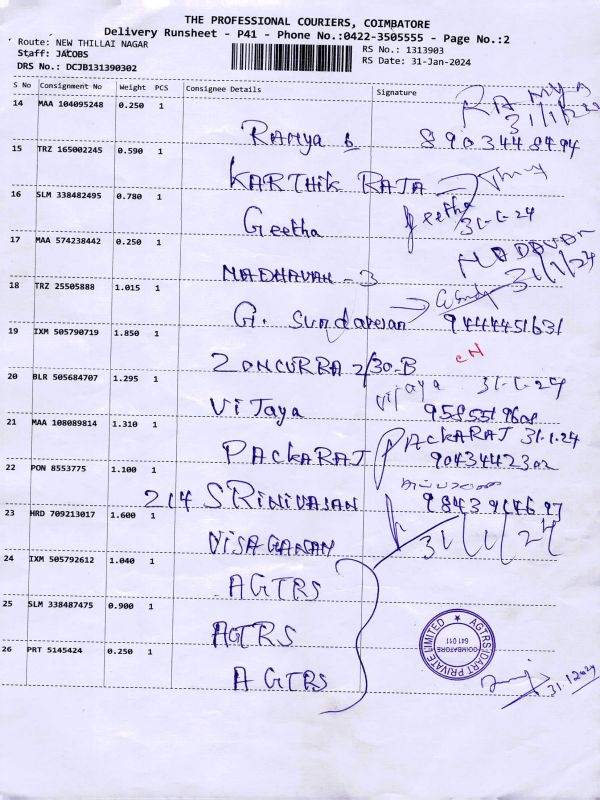 THE PROFESSIONAL COURIERS, COIMBATORE
Delivery Runsheet - P41 - Phone No.:0422-3505555 - Page No.:2
Route: NEW THILLAI NAGAR
RS No.: 1313903
Staff: JACOBS
RS Date: 31-Jan-2024
DRS No.: DCJB131390302
S No Consignment No Weight PCS Consignee Details Signature
14 MAA 104095248 0.250 1
RAMYA
31/1/2024
Ramya 8903448494
15 TRZ 165002245 0.590 1
KARTHIK RAJA
16 SLM 338482495 0.780 1
Geetha Geetha
31-1-24
17 MAA 574238442 0.250 1
MADHAVAN - 3 MADAVAN
31/1/24
18 TRZ 25505888 1.015 1
G. Sundaresan 9444451631
19 IXM 505790719 1.850 1
ZONCURRA 2/30-B CN
20 BLR 505684707 1.295 1
Vijaya Vijaya 31-1-24
21 MAA 108089814 1.310 1
PACKARAJ PACKARAJ 31.1.24
9043442302
22 PON 8553775 1.100 1
214 SRINIVASAN
23 HRD 709213017 1.600 1
VISAGANAN 31/1/24
24 IXM 505792612 1.040 1
AGTRS
25 SLM 338487475 0.900 1
AGTRS
26 PRT 5145424 0.250 1
AGTRS
AGTRSIDART PRIVATE LIMITED
COIMBATORE
641 011
31.1.2024